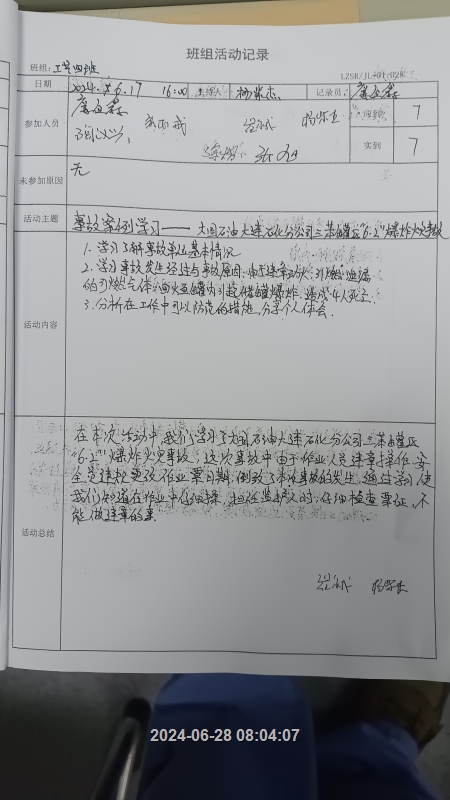 班组活动记录
班组：工艺四班
LZSR/JL
日期 2024.6.17 16:00 主持人 杨荣杰 记录员：
参加人员 应到 7
实到 7
未参加原因 无
活动主题 事故案例学习——大国石油大连石化分公司三苯罐区“6.2”爆炸火灾事故
活动内容
1. 学习了解事故单位基本情况
2. 学习事故发生经过与事故原因，由于违章动火，引燃泄漏
的可燃气体，回火至罐内引起储罐爆炸，造成4人死亡.
3. 分析在工作中可以防范的措施，分享个人体会.
活动总结
在本次活动中，我们学习了大国石油大连石化分公司三苯罐区
“6.2”爆炸火灾事故，这次事故中由于作业人员违章操作，安
全员违规更改作业票日期，倒致了本次事故的发生，通过学习，使
我们知道在作业中 监护人时，仔细检查票证，不
能做违章的事.
2024-06-28 08:04:07